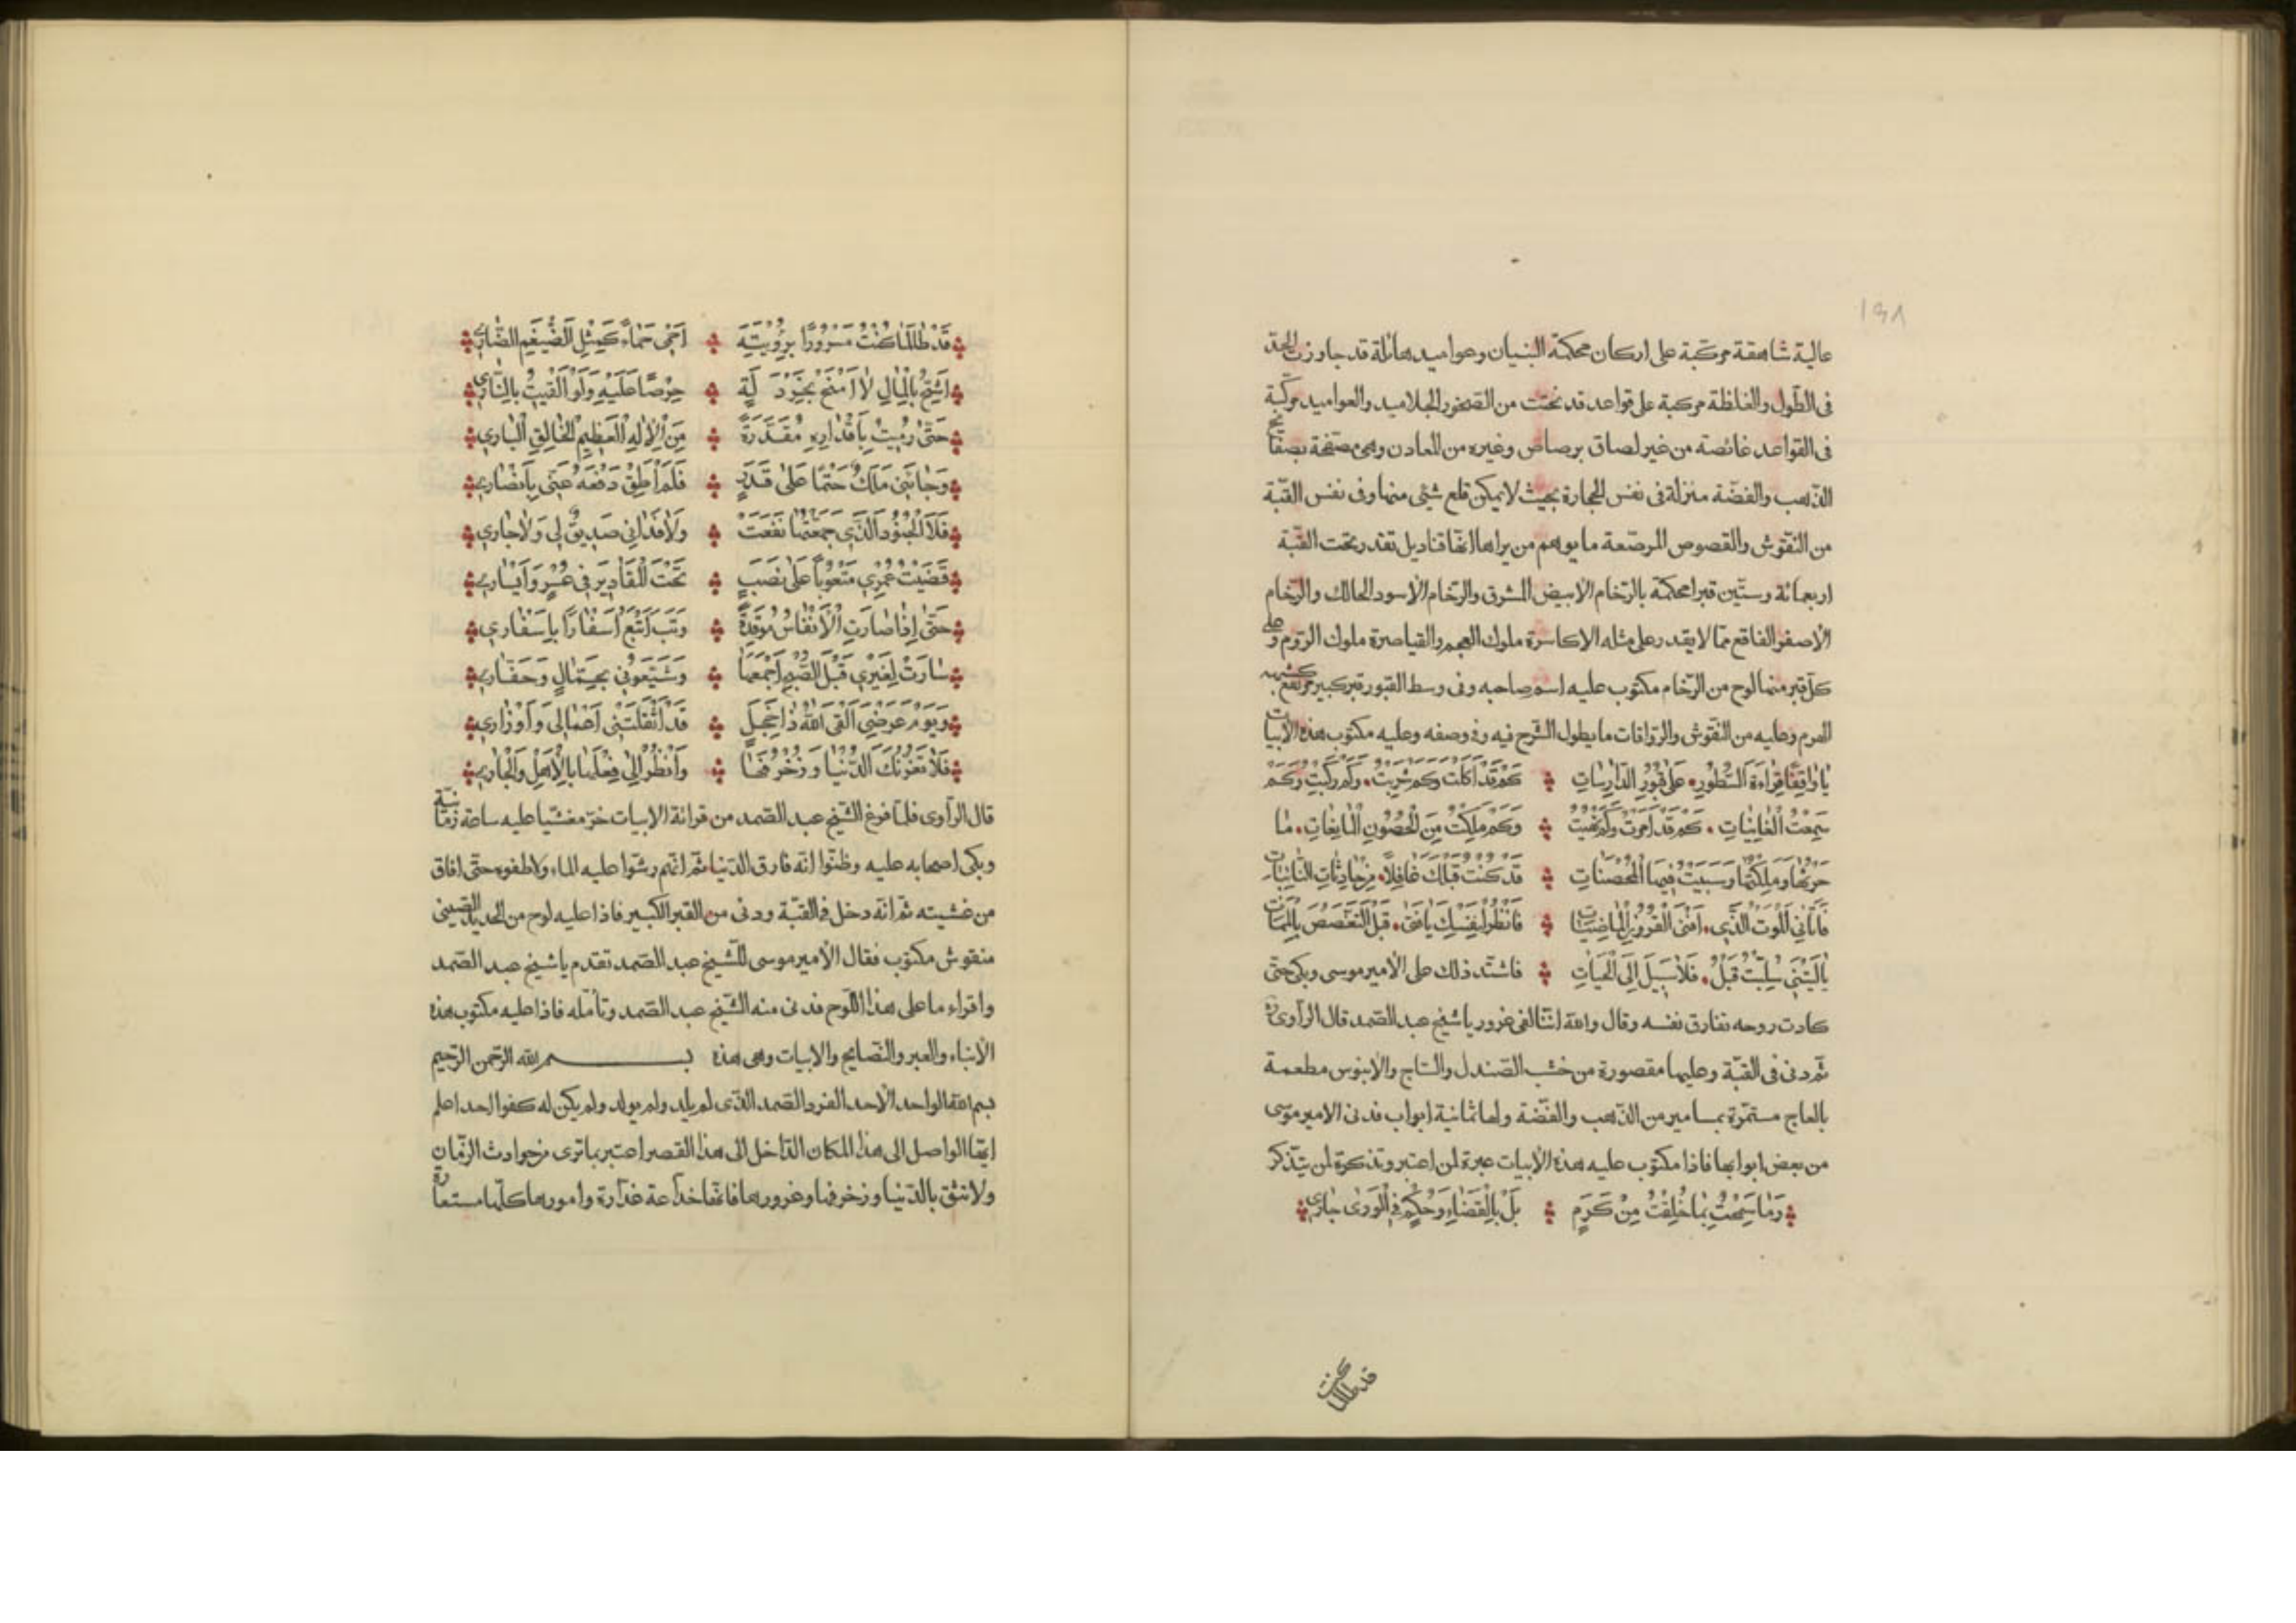 ١٩٨
عالية شاهقة مركبة على اركان محكمة البنيان وعواميد هائلة قد جاوزت الحد
فى الطول والغلاظة مركبة على قواعد قد نحتت من الصخور الجلاميد والعواميد مركبة
فى القواعد غائصة من غير لصاق برصاص وغيره من المعادن وهى مصفحة بصفائح
الذهب والفضة منزلة فى نفس الحجارة بحيث لا يمكن قلع شئ منها وفى نفس القبة
من النقوش والفصوص المرصعة ما يوهم من يراها انها قناديل تقد وتحت القبة
اربعمائة وستين قبرا محكمة بالرخام الابيض المشرق والرخام الاسود الحالك والرخام
الاصفر الفاقع مما لا يقدر على مثله الاكاسرة ملوك العجم والقياصرة ملوك الروم وعلى
كل قبر منها لوح من الرخام مكتوب عليه اسم صاحبه وفى وسط القبور قبر كبير مرتفع
الهرم وعليه من النقوش والزواقات ما يطول الشرح فيه وفى وصفه وعليه مكتوب هذه الابيات
يا واقفا قراءة السطور على قبور الدارسات كم قد اكلت وكم شربت وكم ركبت وكم
سمعت الغانيات كم قد امرت وكم نهيت وكم ملكت من الحصون المانعات ما
حزتها وملكتها وسبيت فيها المحصنات قد كنت قبلك غافلا من حادثات النائبات
فاتانى الموت الذى افنى القرون الماضيات فانظر لنفسك يا فتى قبل التغصص بالممات
يا ليتنى سلبت قبل فلا سبيل الى الحيات فاشتد ذلك على الامير موسى وبكى حتى
كادت روحه تفارق نفسه وقال والله اننا لفى غرور يا شيخ عبد الصمد قال الراوى
ثم دنى فى القبة وعليها مقصورة من خشب الصندل والساج والابنوس مطعمة
بالعاج مستمرة بمسامير من الذهب والفضة ولها ثمانية ابواب فدنى الامير موسى
من بعض ابوابها فاذا مكتوب عليه هذه الابيات عبرة لمن اعتبر وتذكرة لمن يتذكر
وَمَا سَمِحْتُ بِمَا خُلِّفْتُ مِنْ كَرَمٍ بَلْ بِالْقَضَاءِ وَحُكْمٍ فِى الْوَرَى جَارِى
قد طالما كنت
قد طالما كنت مسرورا برؤيته احمى حماء كمثل الضيغم الضارى
اشح بالمال لا امنح بخردلة حرصا عليه ولو القيت بالنار
حتى رميت باقداره مقدرة من الاله العظيم الخالق البارى
وجاءنى ملك حتما على قدر فلم اطق دفعه عنى بانصارى
فلا الجنود الذى جمعتها نفعت ولا فدانى صديق لى ولا جارى
قضيت عمرى متعوبا على نصب تحت المقادير فى عسر وايسار
حتى اذا صارت الانفاس موقدة
سارت لغيرى قبل الصبح اجمعها وشيعونى بجمال وحفار
ويوم عرضى القى الله ذا خجل قد اثقلتنى اعمالى واوزارى
فلا تغرنك الدنيا وزخرفها وانظر الى فعلها بالاهل والجار
قال الراوى فلما فرغ الشيخ عبد الصمد من قرائة الابيات خر مغشيا عليه ساعة زمانية
وبكى اصحابه عليه وظنوا انه فارق الدنيا ثم انهم رشوا عليه الماء ولاطفوه حتى افاق
من غشيته ثم انه دخل فى القبة ودنى من القبر الكبير فاذا عليه لوح من الحديد الصينى
منقوش مكتوب فقال الامير موسى للشيخ عبد الصمد تقدم يا شيخ عبد الصمد
واقراء ما على هذا اللوح فدنى منه الشيخ عبد الصمد وتأمله فاذا عليه مكتوب هذه
الانباء والعبر والنصايح والابيات وهى هذه بسم الله الرحمن الرحيم
بسم الله الواحد الاحد الفرد الصمد الذى لم يلد ولم يولد ولم يكن له كفوا احد اعلم
ايها الواصل الى هذا المكان الداخل الى هذا القصر اعتبر بما ترى من حوادث الزمان
ولا تثق بالدنيا وزخرفها وغرورها فانها خداعة غدارة وامورها كلها مستعارة